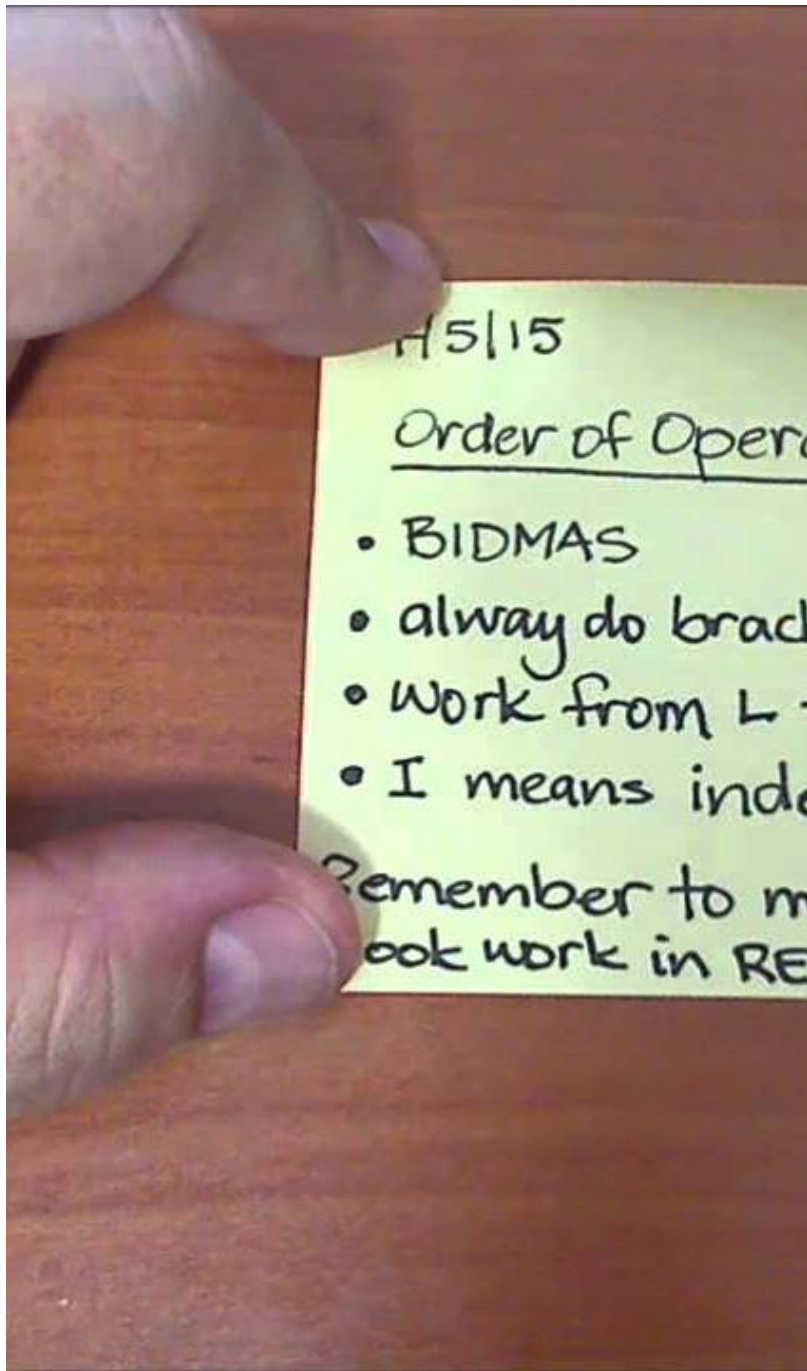 5/15
Order of Opera
• BIDMAS
• alway do brack
• Work from L
• I means inde
Remember to m
ook work in RE